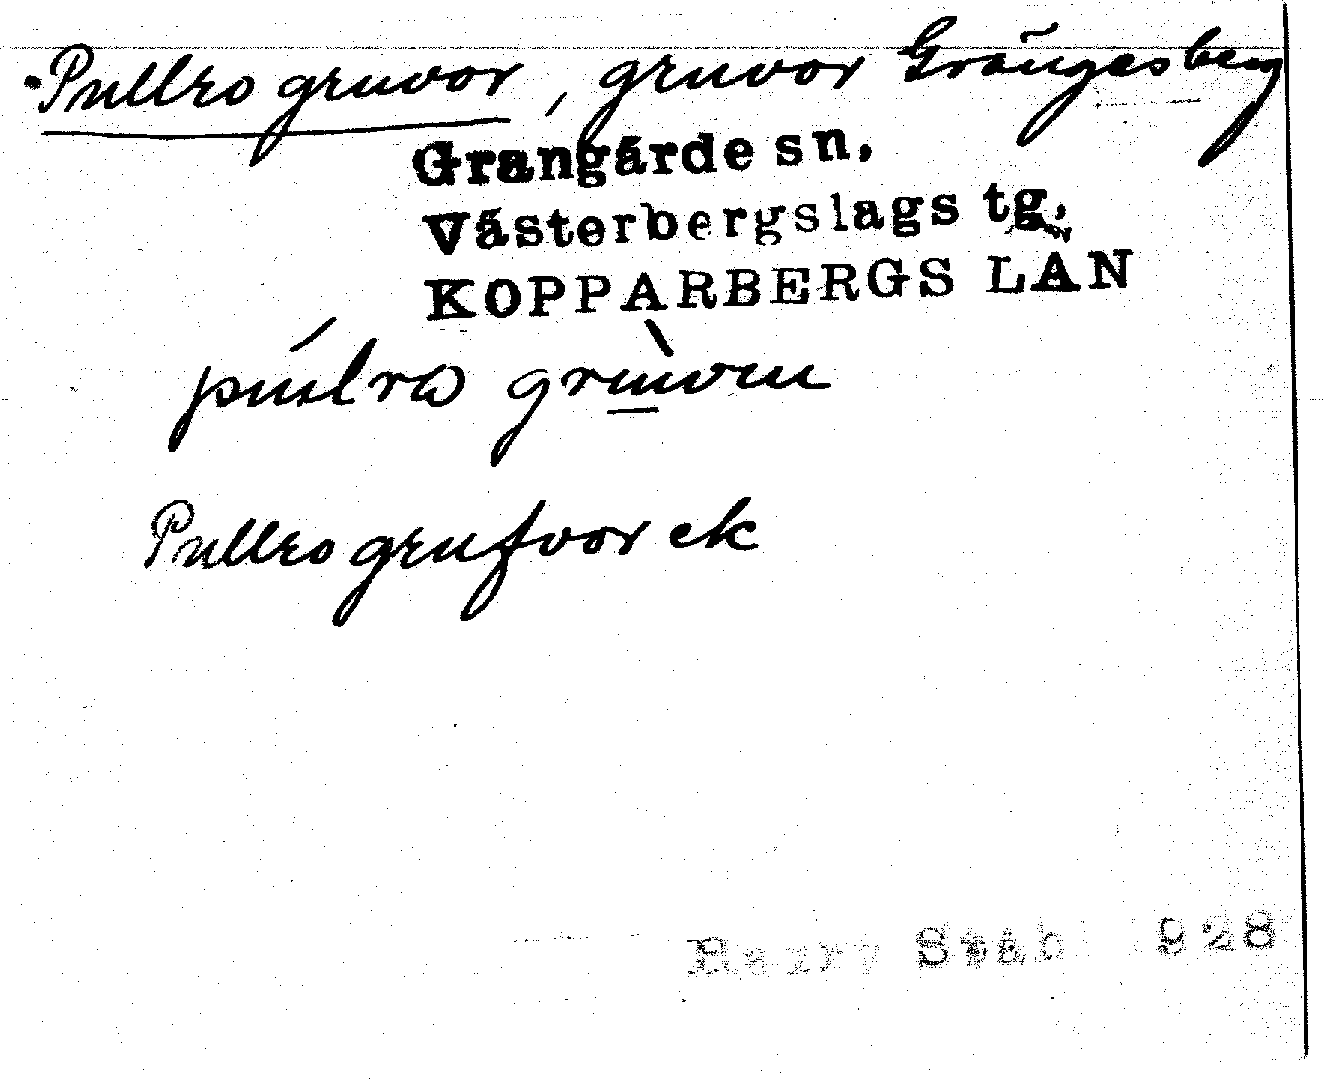 Pullro gruvor, gruvor Grängesberg
Grangärde sn,
Västerbergslags tg.
KOPPARBERGS LÄN
pulra gruvor
Pullro grufvor ek
Harry Ståhl 928